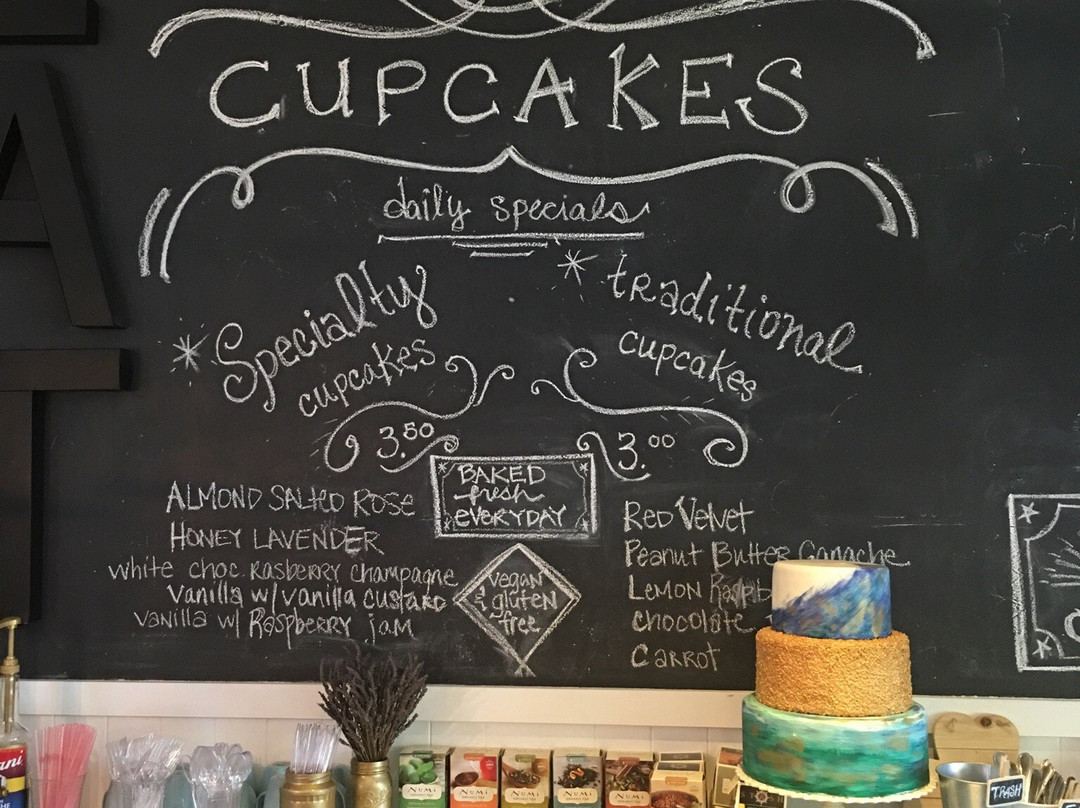 CUPCAKES
daily specials
* Specialty
cupcakes
3.50
* traditional
cupcakes
3.00
BAKED
fresh
EVERYDAY
ALMOND SALTED ROSE
HONEY LAVENDER
white choc RASBERRY champagne
Vanilla w/vanilla custard
vanilla w/ Raspberry jam
vegan
& gluten
free
Red Velvet
Peanut Butter Ganache
Lemon
chocolate
Carrot
A
T
ani
NUMI
NUMI
NUMI
NUMI
NUMI
TRASH